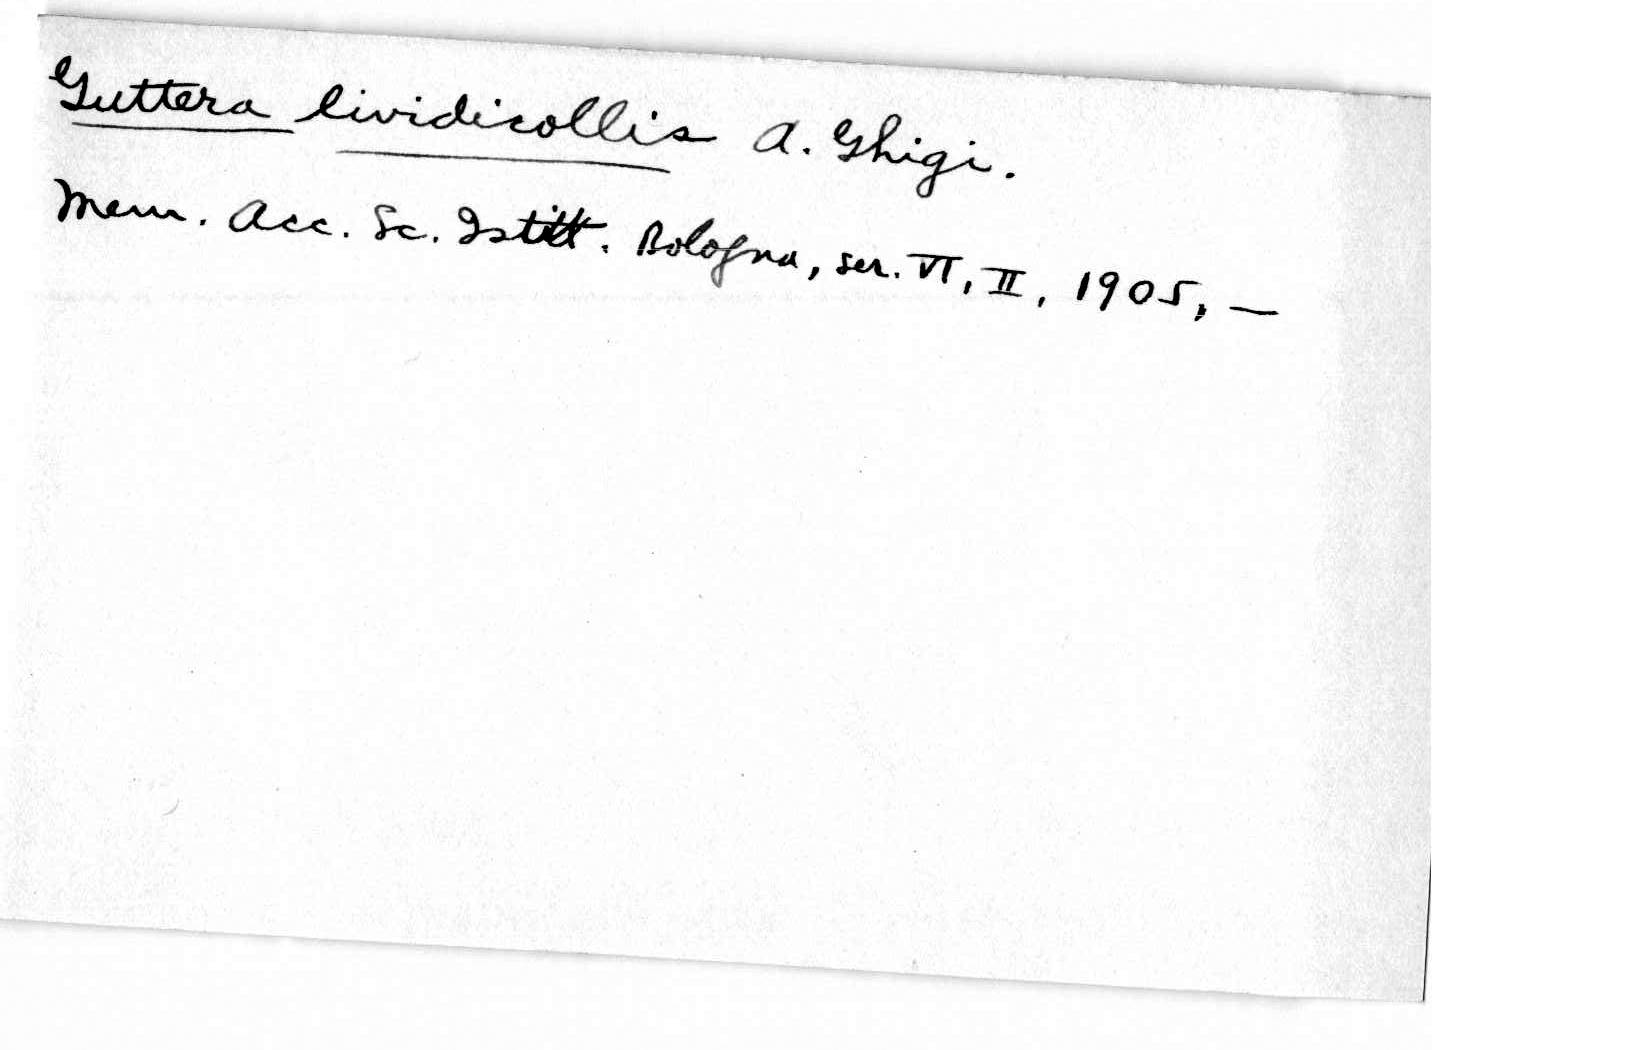 Guttera lividicollis A. Ghigi.
Mem. Acc. Sc. Istitt. Bologna, ser. VI, II, 1905, —